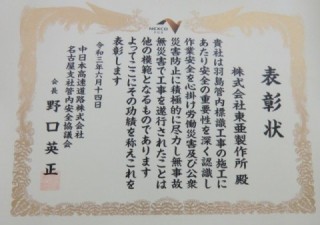 NEXCO
表彰状
株式会社東亜製作所 殿
貴社は羽島管内標識工事の施工に
あたり安全の重要性を深く認識し
作業安全を心掛け労働災害及び公衆
災害防止に積極的に尽力し無事故
無災害で工事を遂行されたことは
他の模範となるものであります
よってここにその功績を称えこれを
表彰します
令和三年六月十四日
中日本高速道路株式会社
名古屋支社管内安全協議会
会長 野口英正